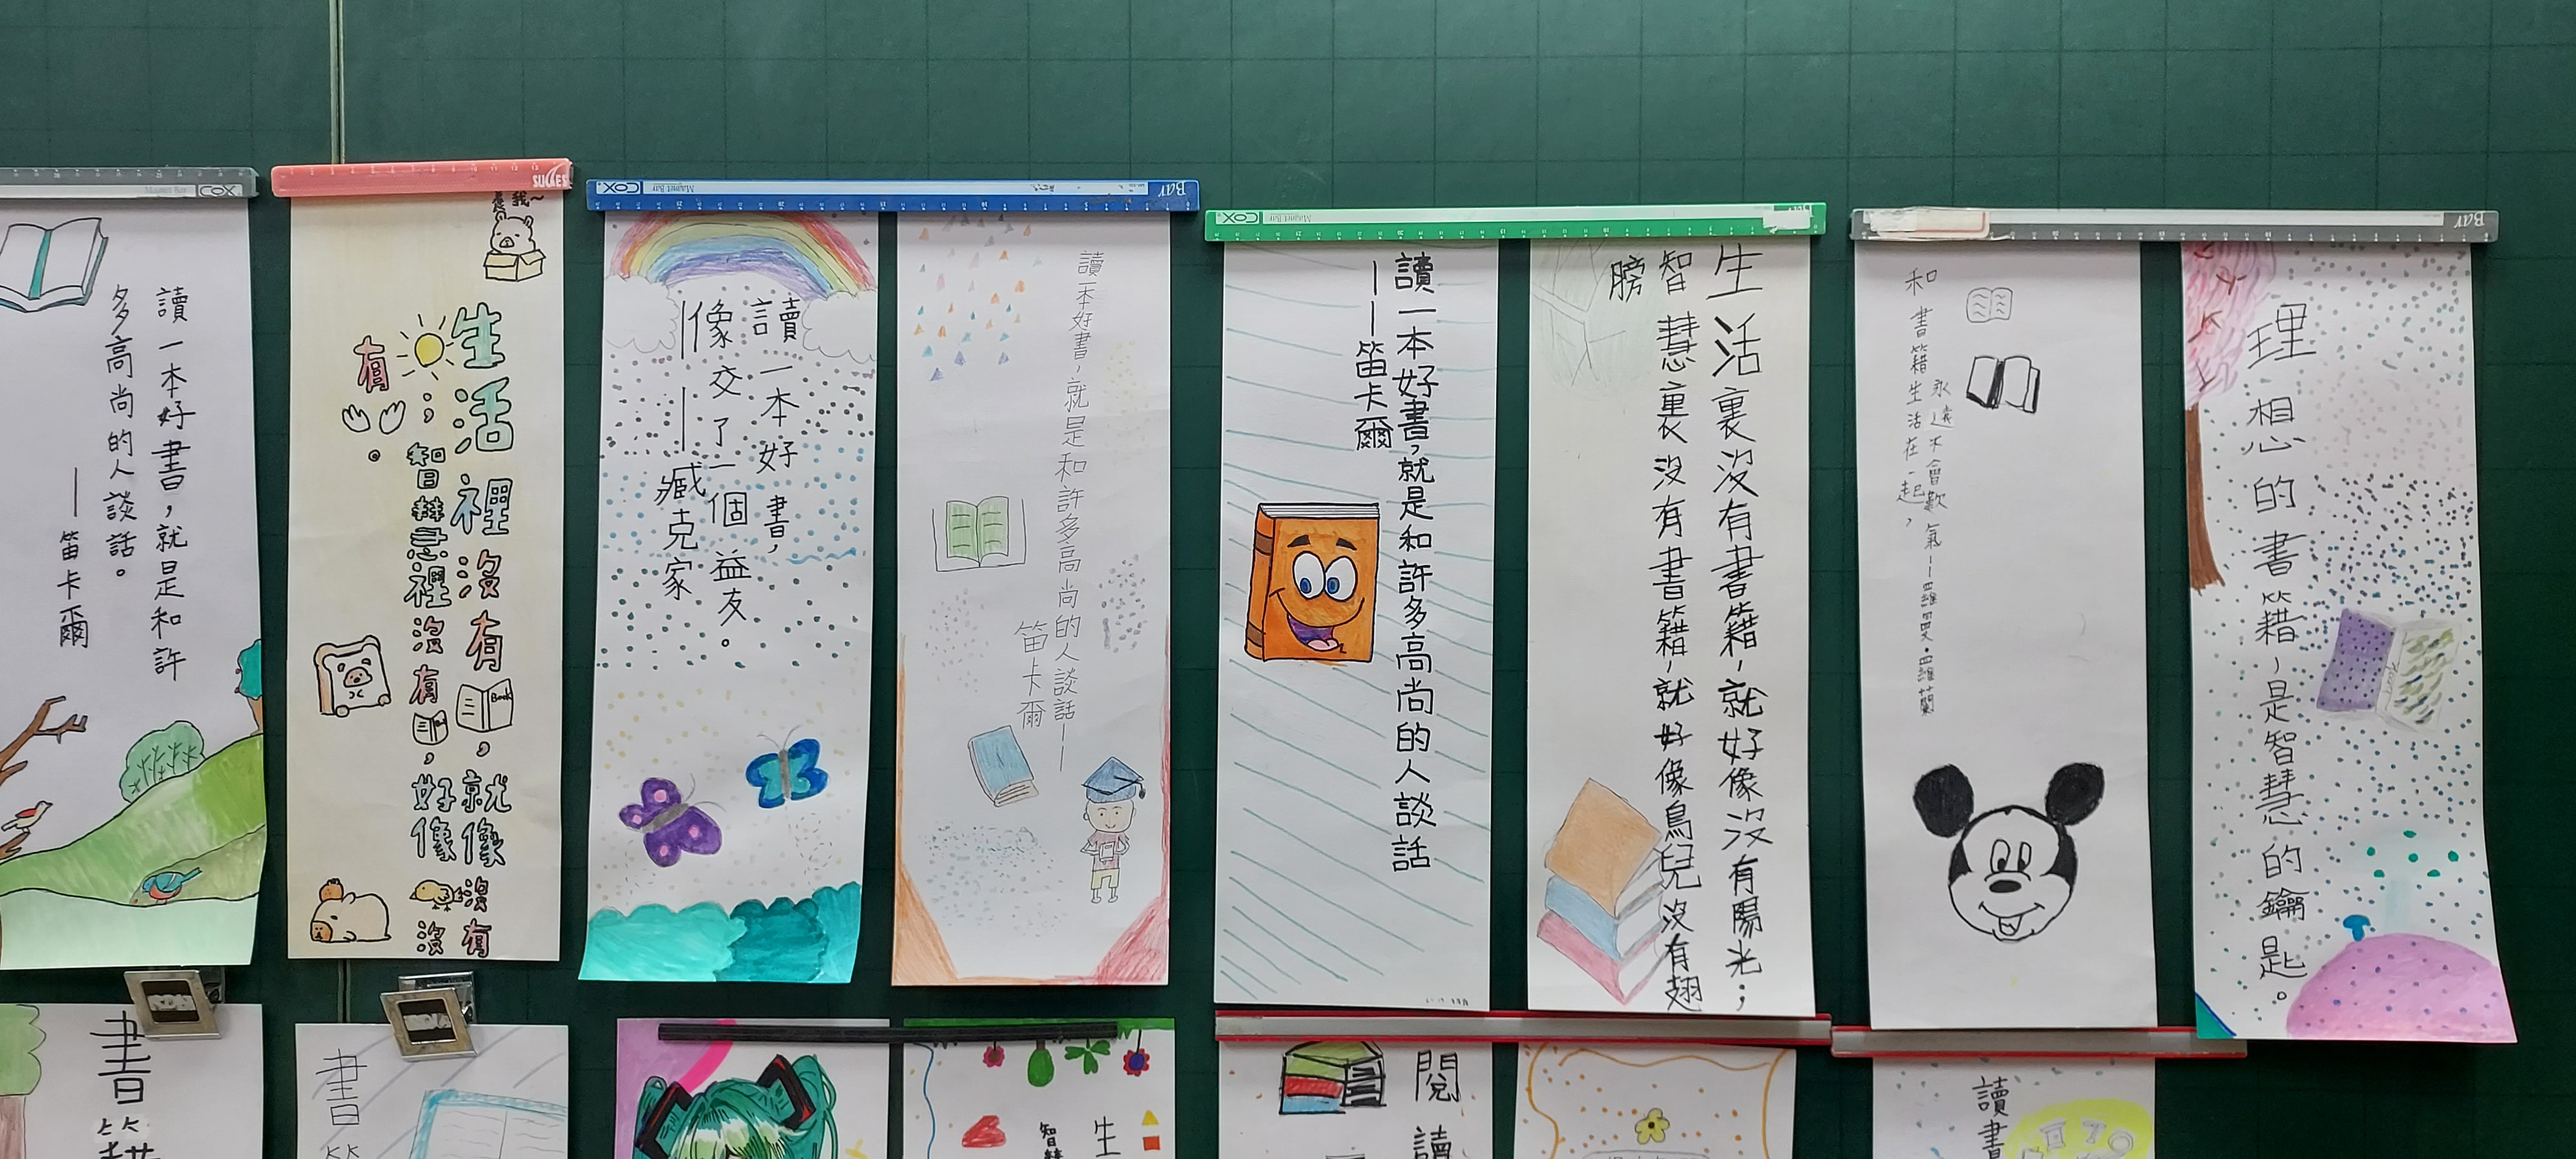 COX
Magnet Bar
讀一本好書,就是和許
多高尚的人談話。
——笛卡爾
SUCCES
是我~
生活裡沒有
Book
,就像沒有
;智慧裡沒有
,好像沒
有
。
COX
Magnet Bar
Bar
讀一本好書,
像交了一個益友。
——臧克家
讀一本好書,就是和許多高尚的人談話——
笛卡爾
COX
Magnet Bar
讀一本好書,就是和許多高尚的人談話
——笛卡爾
生活裏沒有書籍,就好像沒有陽光;
智慧裏沒有書籍,就好像鳥兒沒有翅
膀
Bar
和書籍生活在一起,
永遠不會歎氣—羅曼·羅蘭
理想的書籍,是智慧的鑰匙。
書籍
書
生
智慧
閱讀
讀書